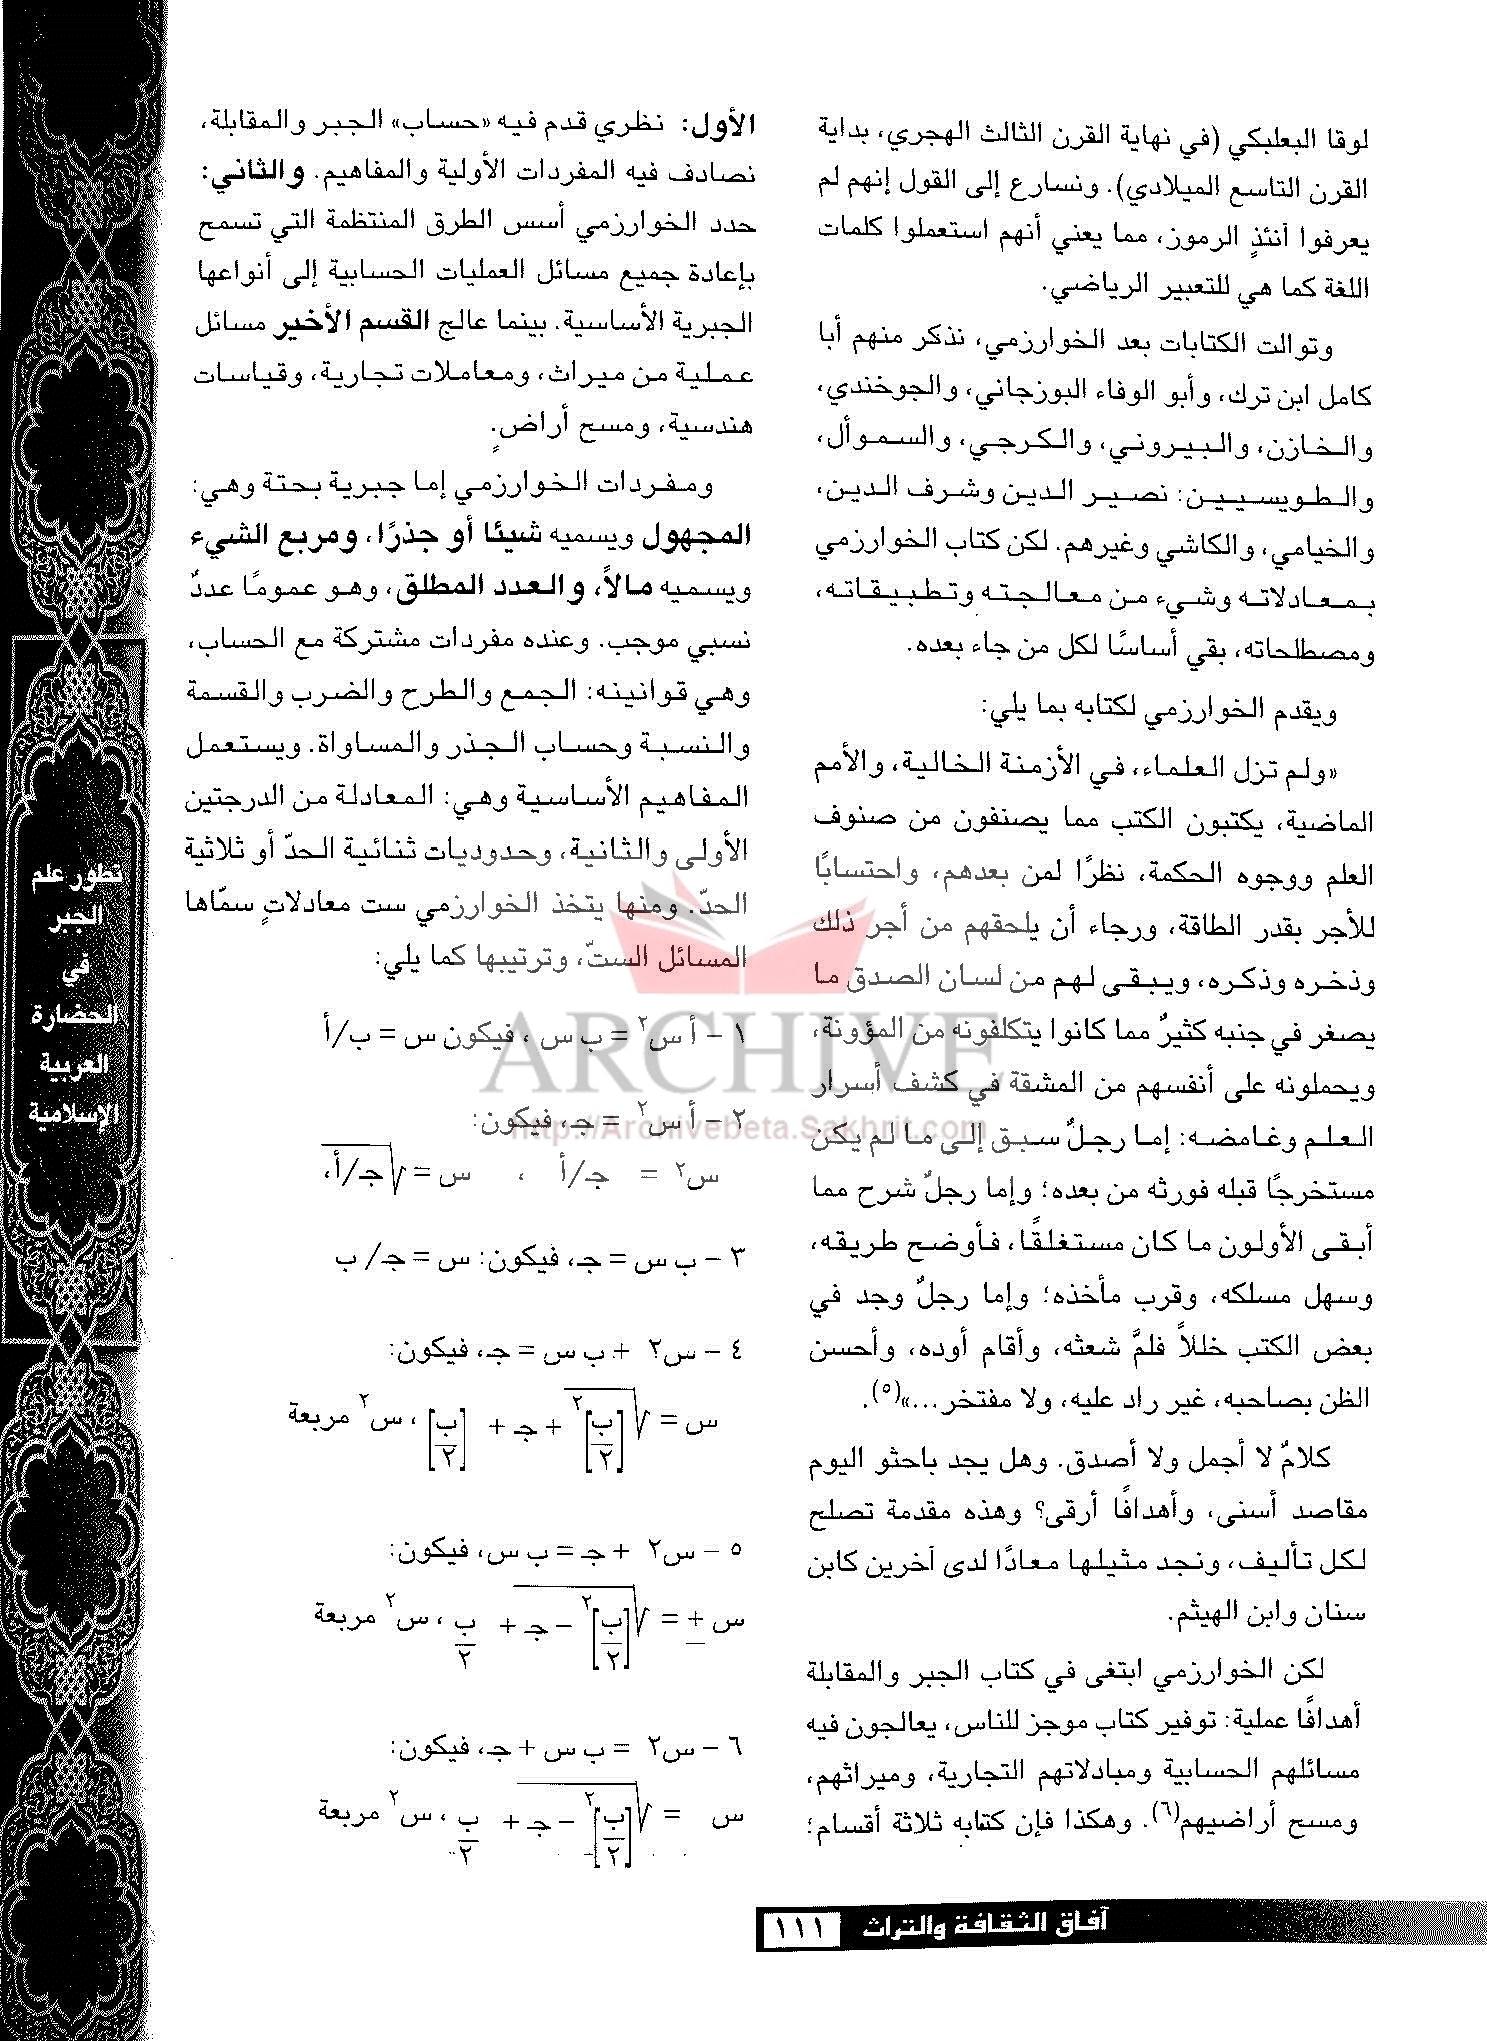 لوقا البعلبكي (في نهاية القرن الثالث الهجري، بداية
القرن التاسع الميلادي). ونسارع إلى القول إنهم لم
يعرفوا آنئذٍ الرموز، مما يعني أنهم استعملوا كلمات
اللغة كما هي للتعبير الرياضي.
وتوالت الكتابات بعد الخوارزمي، نذكر منهم أبا
كامل ابن ترك، وأبو الوفاء البوزجاني، والجوخندي،
والخازن، والبيروني، والكرجي، والسموأل،
والطوسيين: نصير الدين وشرف الدين،
والخيامي، والكاشي وغيرهم. لكن كتاب الخوارزمي
بمعادلاته وشيء من معالجته وتطبيقاته،
ومصطلحاته، بقي أساسًا لكل من جاء بعده.
ويقدم الخوارزمي لكتابه بما يلي:
«ولم تزل العلماء، في الأزمنة الخالية، والأمم
الماضية، يكتبون الكتب مما يصنفون من صنوف
العلم ووجوه الحكمة، نظرًا لمن بعدهم، واحتسابًا
للأجر بقدر الطاقة، ورجاء أن يلحقهم من أجر ذلك
وذخره وذكره، ويبقى لهم من لسان الصدق ما
يصغر في جنبه كثيرٌ مما كانوا يتكلفونه من المؤونة،
ويحملونه على أنفسهم من المشقة في كشف أسرار
العلم وغامضه: إما رجلٌ سبق إلى ما لم يكن
مستخرجًا قبله فورثه من بعده؛ وإما رجلٌ شرح مما
أبقى الأولون ما كان مستغلقًا، فأوضح طريقه،
وسهل مسلكه، وقرب مأخذه؛ وإما رجلٌ وجد في
بعض الكتب خللاً فلمَّ شعثه، وأقام أوده، وأحسن
الظن بصاحبه، غير راد عليه، ولا مفتخر...»(٥).
كلامٌ لا أجمل ولا أصدق. وهل يجد باحثو اليوم
مقاصد أسنى، وأهدافًا أرقى؟ وهذه مقدمة تصلح
لكل تأليف، ونجد مثيلها معادًا لدى آخرين كابن
سنان وابن الهيثم.
لكن الخوارزمي ابتغى في كتاب الجبر والمقابلة
أهدافًا عملية: توفير كتاب موجز للناس، يعالجون فيه
مسائلهم الحسابية ومبادلاتهم التجارية، وميراثهم،
ومسح أراضيهم(٦). وهكذا فإن كتابه ثلاثة أقسام؛
الأول: نظري قدم فيه «حساب» الجبر والمقابلة،
نصادف فيه المفردات الأولية والمفاهيم. والثاني:
حدد الخوارزمي أسس الطرق المنتظمة التي تسمح
بإعادة جميع مسائل العمليات الحسابية إلى أنواعها
الجبرية الأساسية. بينما عالج القسم الأخير مسائل
عملية من ميراث، ومعاملات تجارية، وقياسات
هندسية، ومسح أراضٍ.
ومفردات الخوارزمي إما جبرية بحتة وهي:
المجهول ويسميه شيئًا أو جذرًا، ومربع الشيء
ويسميه مالاً، والعدد المطلق، وهو عمومًا عددٌ
نسبي موجب. وعنده مفردات مشتركة مع الحساب،
وهي قوانينه: الجمع والطرح والضرب والقسمة
والنسبة وحساب الجذر والمساواة. ويستعمل
المفاهيم الأساسية وهي: المعادلة من الدرجتين
الأولى والثانية، وحدوديات ثنائية الحدّ أو ثلاثية
الحدّ. ومنها يتخذ الخوارزمي ست معادلاتٍ سمّاها
المسائل الستّ، وترتيبها كما يلي:
١ - أ س٢ = ب س، فيكون س = ب/أ
٢ - أ س٢ = جـ، فيكون:
س٢ = جـ/أ ، س = √جـ/أ،
٣ - ب س = جـ، فيكون: س = جـ/ ب
٤ - س٢ + ب س = جـ، فيكون:
س = √[ب/٢]٢ + جـ + [ب/٢]، س٢ مربعة
٥ - س٢ + جـ = ب س، فيكون:
س ± = √[ب/٢]٢ - جـ + ب/٢، س٢ مربعة
٦ - س٢ = ب س + جـ، فيكون:
س = √[ب/٢]٢ - جـ + ب/٢، س٢ مربعة
تطور علم
الجبر
في
الحضارة
العربية
الإسلامية
ARCHIVE
http://Archivebeta.Sakhrit.com
آفاق الثقافة والتراث ١١١